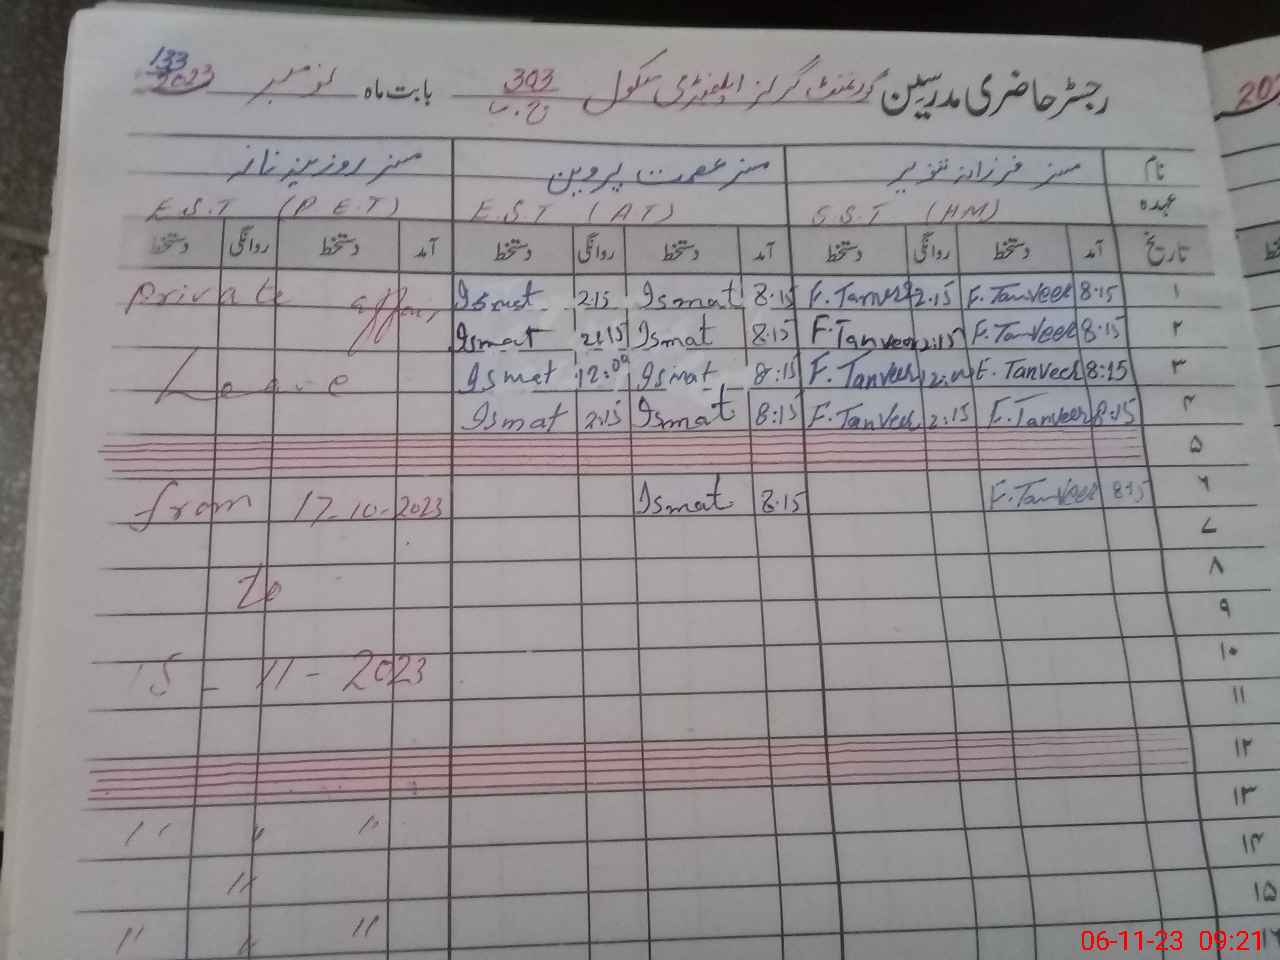 رجسٹر حاضری مدرسین گورنمنٹ گرلز ایلیمنٹری سکول 303 ج.ب بابت ماہ نومبر 2023
133
202
نام مسز فرزانہ تنویر مسز عصمت پروین مسز روزینہ ناز
عہدہ S.S.T (HM) E.S.T (AT) E.S.T (P.E.T)
تاریخ آمد دستخط روانگی دستخط آمد دستخط روانگی دستخط آمد دستخط روانگی دستخط
۱ 8:15 F.Tanveer 2:15 F.Tanveer 8:15 Ismat 2:15 Ismat Private affair
۲ 8:15 F.Tanveer 2:15 F.Tanveer 8:15 Ismat 2:15 Ismat
۳ 8:15 F.Tanveer 12:00 F.Tanveer 8:15 Ismat 12:00 Ismat Leave
۴ 8:15 F.Tanveer 2:15 F.Tanveer 8:15 Ismat 2:15 Ismat
۵
۶ 8:15 F.Tanveer 8:15 Ismat from 17-10-2023
۷
۸ To
۹
۱۰ 15-11-2023
۱۱
۱۲
۱۳ " " "
۱۴ "
۱۵ " " "
06-11-23 09:21